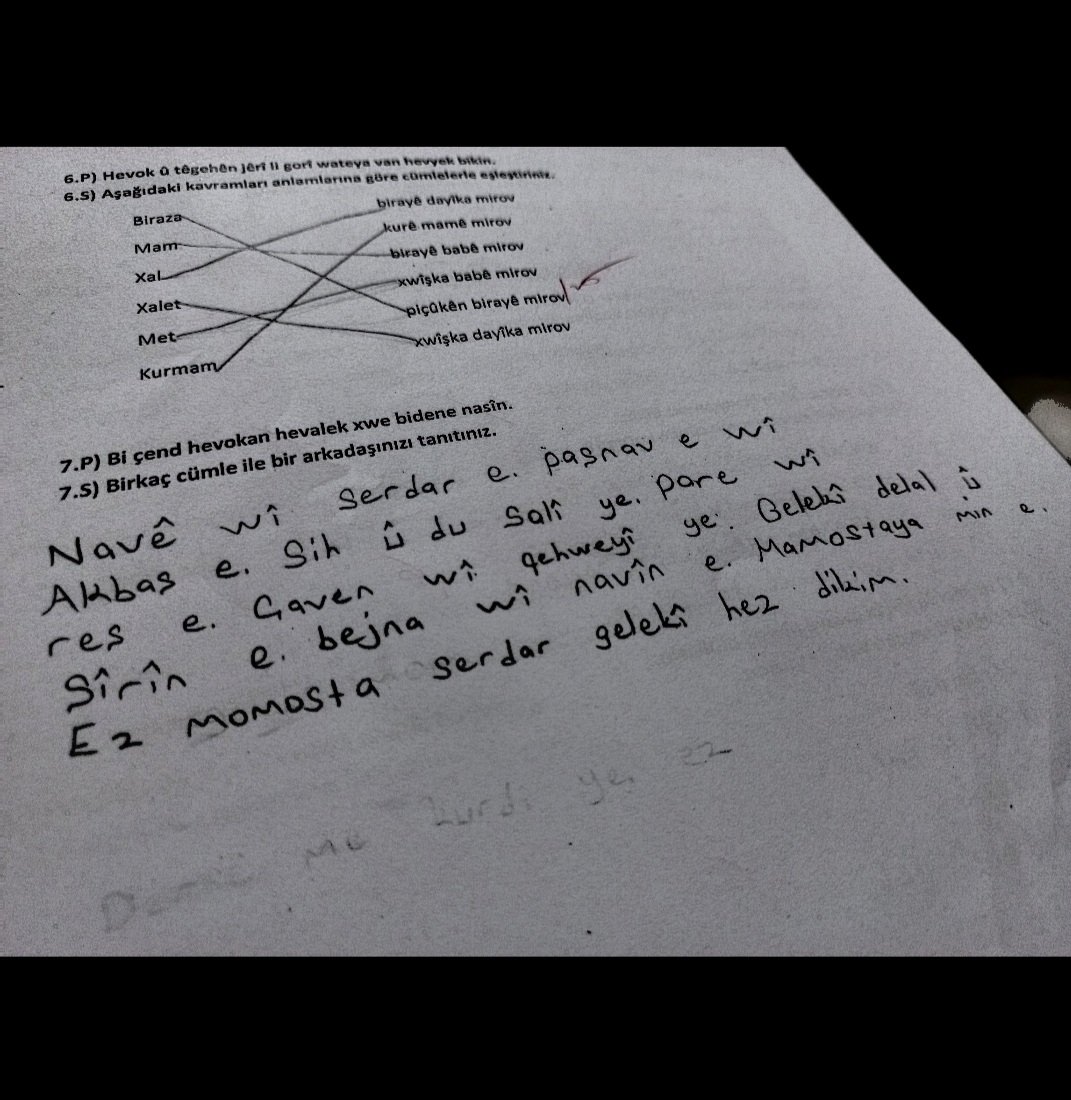 6.P) Hevok û têgehên jêrî li gorî wateya van hevyek bikin.
6.S) Aşağıdaki kavramları anlamlarına göre cümlelerle eşleştiriniz.
Biraza
Mam
Xal
Xalet
Met
Kurmam
birayê dayîka mirov
kurê mamê mirov
birayê babê mirov
xwîşka babê mirov
piçûkên birayê mirov
xwîşka dayîka mirov
7.P) Bi çend hevokan hevalek xwe bidene nasîn.
7.S) Birkaç cümle ile bir arkadaşınızı tanıtınız.
Navê wî Serdar e. paşnav e wî
Akbas e. Sih û du Salî ye. Pore wî
res e. Çaven wî qehweyî ye. Gelekî delal û
Sîrîn e. bejna wî navîn e. Mamostaya min e.
Ez Momosta Serdar gelekî hez dikim.
me kurdi ye ez